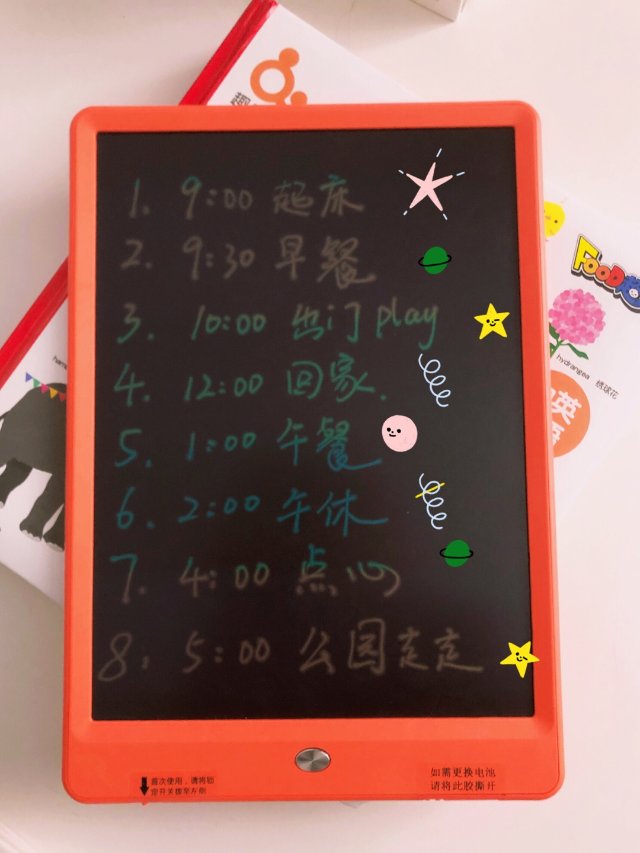 1. 9:00 起床
2. 9:30 早餐
3. 10:00 出门 play
4. 12:00 回家.
5. 1:00 午餐
6. 2:00 午休
7. 4:00 点心
8. 5:00 公园走走
hydrangea 绣球花
首次使用，请将锁
定开关拨至左侧
如需更换电池
请将此胶撕开